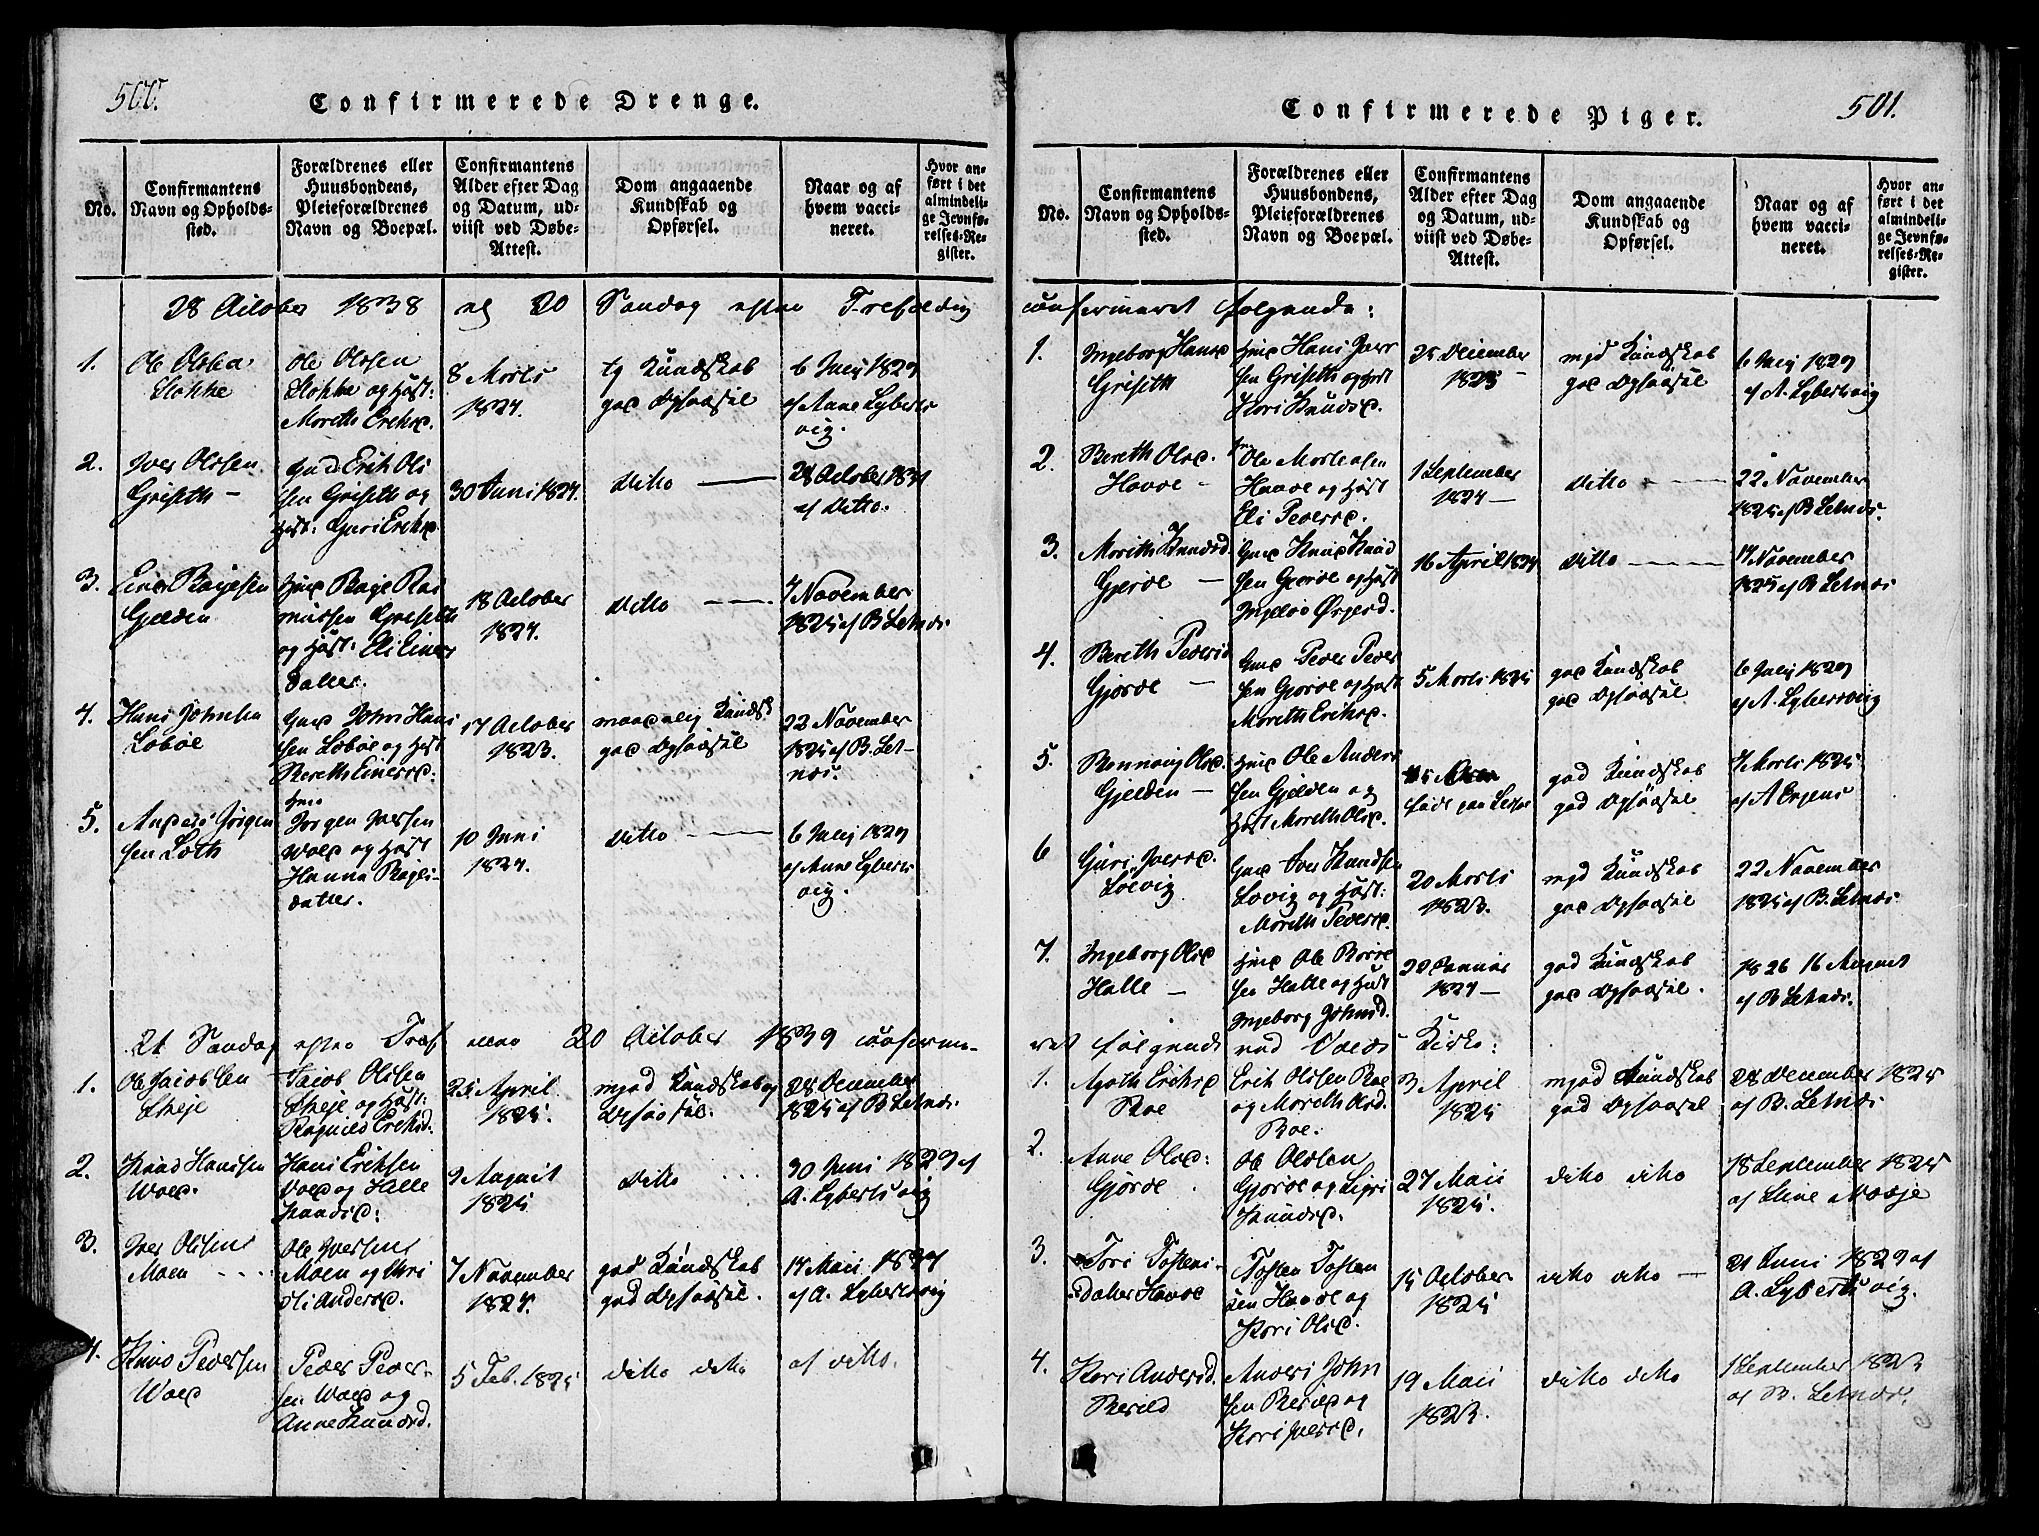 500.
Confirmerede Drenge.
No.
Confirmantens
Navn og Opholds-
sted.
Forældrenes eller
Huusbondens,
Pleieforældrenes
Navn og Boepæl.
Confirmantens
Alder efter Dag
og Datum, ud-
viist ved Døbe-
Attest.
Dom angaaende
Kundskab og
Opførsel.
Naar og af
hvem vacci-
neret.
Hvor an-
ført i det
almindeli-
ge Jevnfø-
relses-Re-
gister.
28 October 1838 20 Søndag efter Trefoldig
1.
Ole Olsen
Stokke
Ole Olssen
Stokke og Høst:
Mareth Eriksd.
8 Marts
1824.
tg Kundskab
god Opførsel
6 Julij 1829
af Anne Lyberts
vig.
2.
Iver Olssen
Griseth –
Erik Ols
sen Griseth og
Høst: Guri Eriksd.
30 Juni 1824.
ditto
28 October 1831
af ditto.
3.
Einer Bagesen
Gjelden
Bage Ras
mussen Griseth
og Høst: Eli Einers
datter.
18 October
1824.
ditto
7 November
1825 af B. Letnæs.
4.
Hans Johnsen
Løbøe
John Hans
sen Løbøe og Høst
Bereth Einersd:
17 October
1823.
maadelig Kundsk
god Opførsel
22 November
1825 af B. Let-
næs.
5.
Anders Jørgen
sen Loth
Jørgen Iversen
Wold og Høst
Hanna Bages-
datter.
10 Juni
1824.
ditto
6 Julij 1829
af Anne Lyberts
vig.
21 Søndag efter Tref 20 October 1839 confirme-
1.
Ole Jacobsen
Steje
Jacob Olssen
Steje og Høst:
Ragnild Eriksd.
25 April
1825.
mgod Kundskab og
Opførsel.
28 December
1825 af B Letnæs.
2.
Knud Hanssen
Wold.
Hans Eriksen
Vold og Halle
Knudsd:
9 August
1825
ditto
30 Juni 1829 af
A. Lyberts vig
3.
Iver Olssen
Moen
Ole Iversen
Moen og
Andersd.
7 November
1824.
god Kundskab
god Opførsel.
af A. Lybertsvig
4.
Knud Pedersen
Wold
Peder Peder-
sen Wold og
Anne Knudsd.
5 Feb. 1825
ditto ditto
af ditto.
Confirmerede Piger.
501.
No.
Confirmantens
Navn og Opholds-
sted.
Forældrenes eller
Huusbondens,
Pleieforældrenes
Navn og Boepæl.
Confirmantens
Alder efter Dag
og Datum, ud-
viist ved Døbe-
Attest.
Dom angaaende
Kundskab og
Opførsel.
Naar og af
hvem vacci-
neret.
Hvor an-
ført i det
almindeli-
ge Jevnfø-
relses-Re-
gister.
confirmeret følgende:
1.
Ingeborg Hansd
Griseth
Hans Iver
sen Griseth og Høst
Kari Knudsd.
25 December
1823
mgd Kundskab
god Opførsel
6 Julij 1829
af A. Lybertsvig
2.
Bereth Olsd.
Hovde –
Ole Mortensen
Hovde og Høst
Eli Pedersd.
1 September
1824 –
ditto
22 November
1825 af B Letnæs.
3.
Marith Knudsd.
Gjerde –
Knud Knud
sen Gjørde og Høst
16 April 1824
ditto
17 November
1825 af B Letnæs
4.
Bereth Pedersd
Gjørde –
Peder Peder
sen Gjørde og Høst
Mareth Eriksd.
5 Marts 1825
god Kundskab
god Opførsel
6 Julij 1829
af A. Lybertsvig
5.
Rønnaug Olsd.
Gjelden –
Ole Anders
sen Gjelden og
Høst Mareth Olsd.
god Kundskab
god Opførsel
7 Marts 1825
af A
6
Guri Iversd.
Løevig
Iver Knudsen
Løvig og Høst:
Mareth Pedersd.
20 Marts
1823.
mgd Kundskab
god Opførsel
22 November
1825 af B. Letnæs
7.
Ingeborg Olsd
Halle –
Ole
sen Halle og Høst
Ingeborg Johnsd.
28 Januar
1824 –
god Kundskab
god Opførsel.
1826 16 August
af B Letnæs.
ret følgende ved Kirke:
1.
Agoth Eriksd
Roe
Erik Olssen Roe
og Mareth Olsd.
Roe.
3 April
1825
mgod Kundskab
god Opførsel
28 December 1825
af B. Letnæs
2.
Anne Olsd:
Gjørde
Ole Olssen
Gjørde og Sigri
Knudsd.
27 Maii
1825.
ditto ditto
18 September 1825
af
3.
Tori Tostens-
datter Hovde
Tosten Tosten
sen Hovde og
Kari Olsd.
15 October
1825
ditto ditto –
21 Juni 1829 af
A. Lyberts vig.
4.
Kari Andersd.
Berild
Anders John
sen Berild og
Kari Iversd.
19 Maii
1823.
ditto ditto
September 1823
af B. Letnæs.